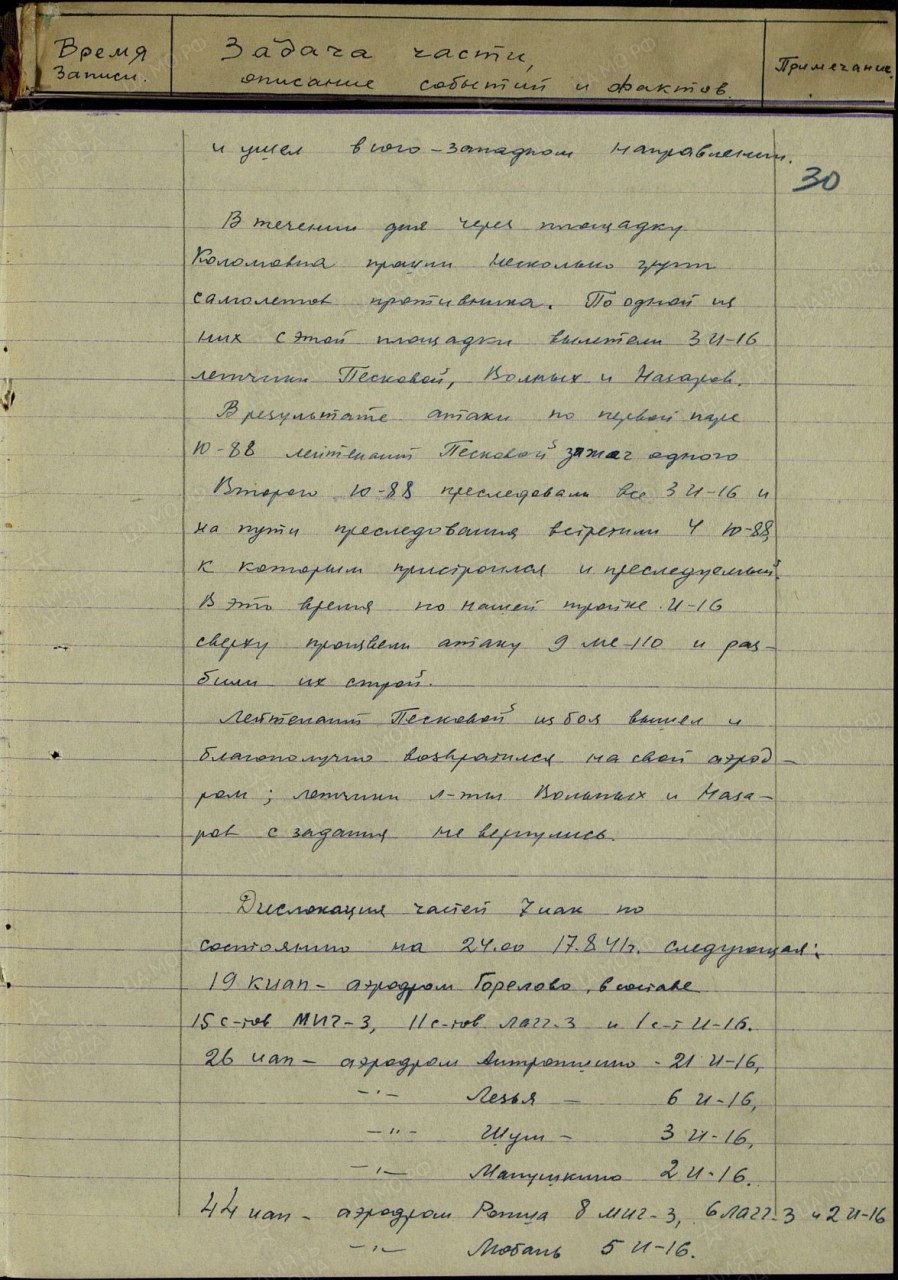 Время
Записи.
Задача части,
описание событий и фактов.
Примечание.
30
и ушел в юго-западном направлении.
В течении дня через площадку
Коломовка прошли несколько групп
самолетов противника. По одной из
них с этой площадки вылетели 3 И-16
летчики Песковой, Вольных и Назаров.
В результате атаки по первой паре
Ю-88 лейтенант Песковой зажег одного
Второго Ю-88 преследовали все 3 И-16 и
на пути преследования встретили 4 Ю-88,
к которым пристроился и преследуемый.
В это время по нашей тройке И-16
сверху произвели атаку 9 ме-110 и раз-
били их строй.
Лейтенант Песковой из боя вышел и
благополучно возвратился на свой аэрод-
ром; летчики л-ты Вольных и Наза-
ров с задания не вернулись.
Дислокация частей 7 иак по
состоянию на 24.00 17.8.41г. следующая:
19 киап - аэродром Горелово, в составе
15 с-тов МИГ-3, 11 с-тов Лагг-3 и 1 с-т И-16.
26 иап - аэродром Антропшино - 21 И-16,
-"- Лезья - 6 И-16,
-"- Шум - 3 И-16,
-"- Манушкино 2 И-16.
44 иап - аэродром Ропша 8 миг-3, 6 Лагг-3 и 2 И-16
-"- Любань 5 И-16.